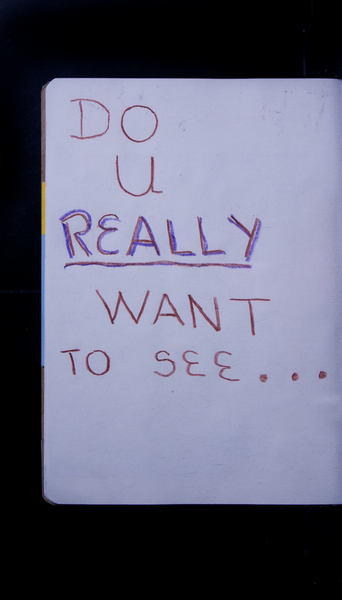 DO
U
REALLY
WANT
TO SEE...